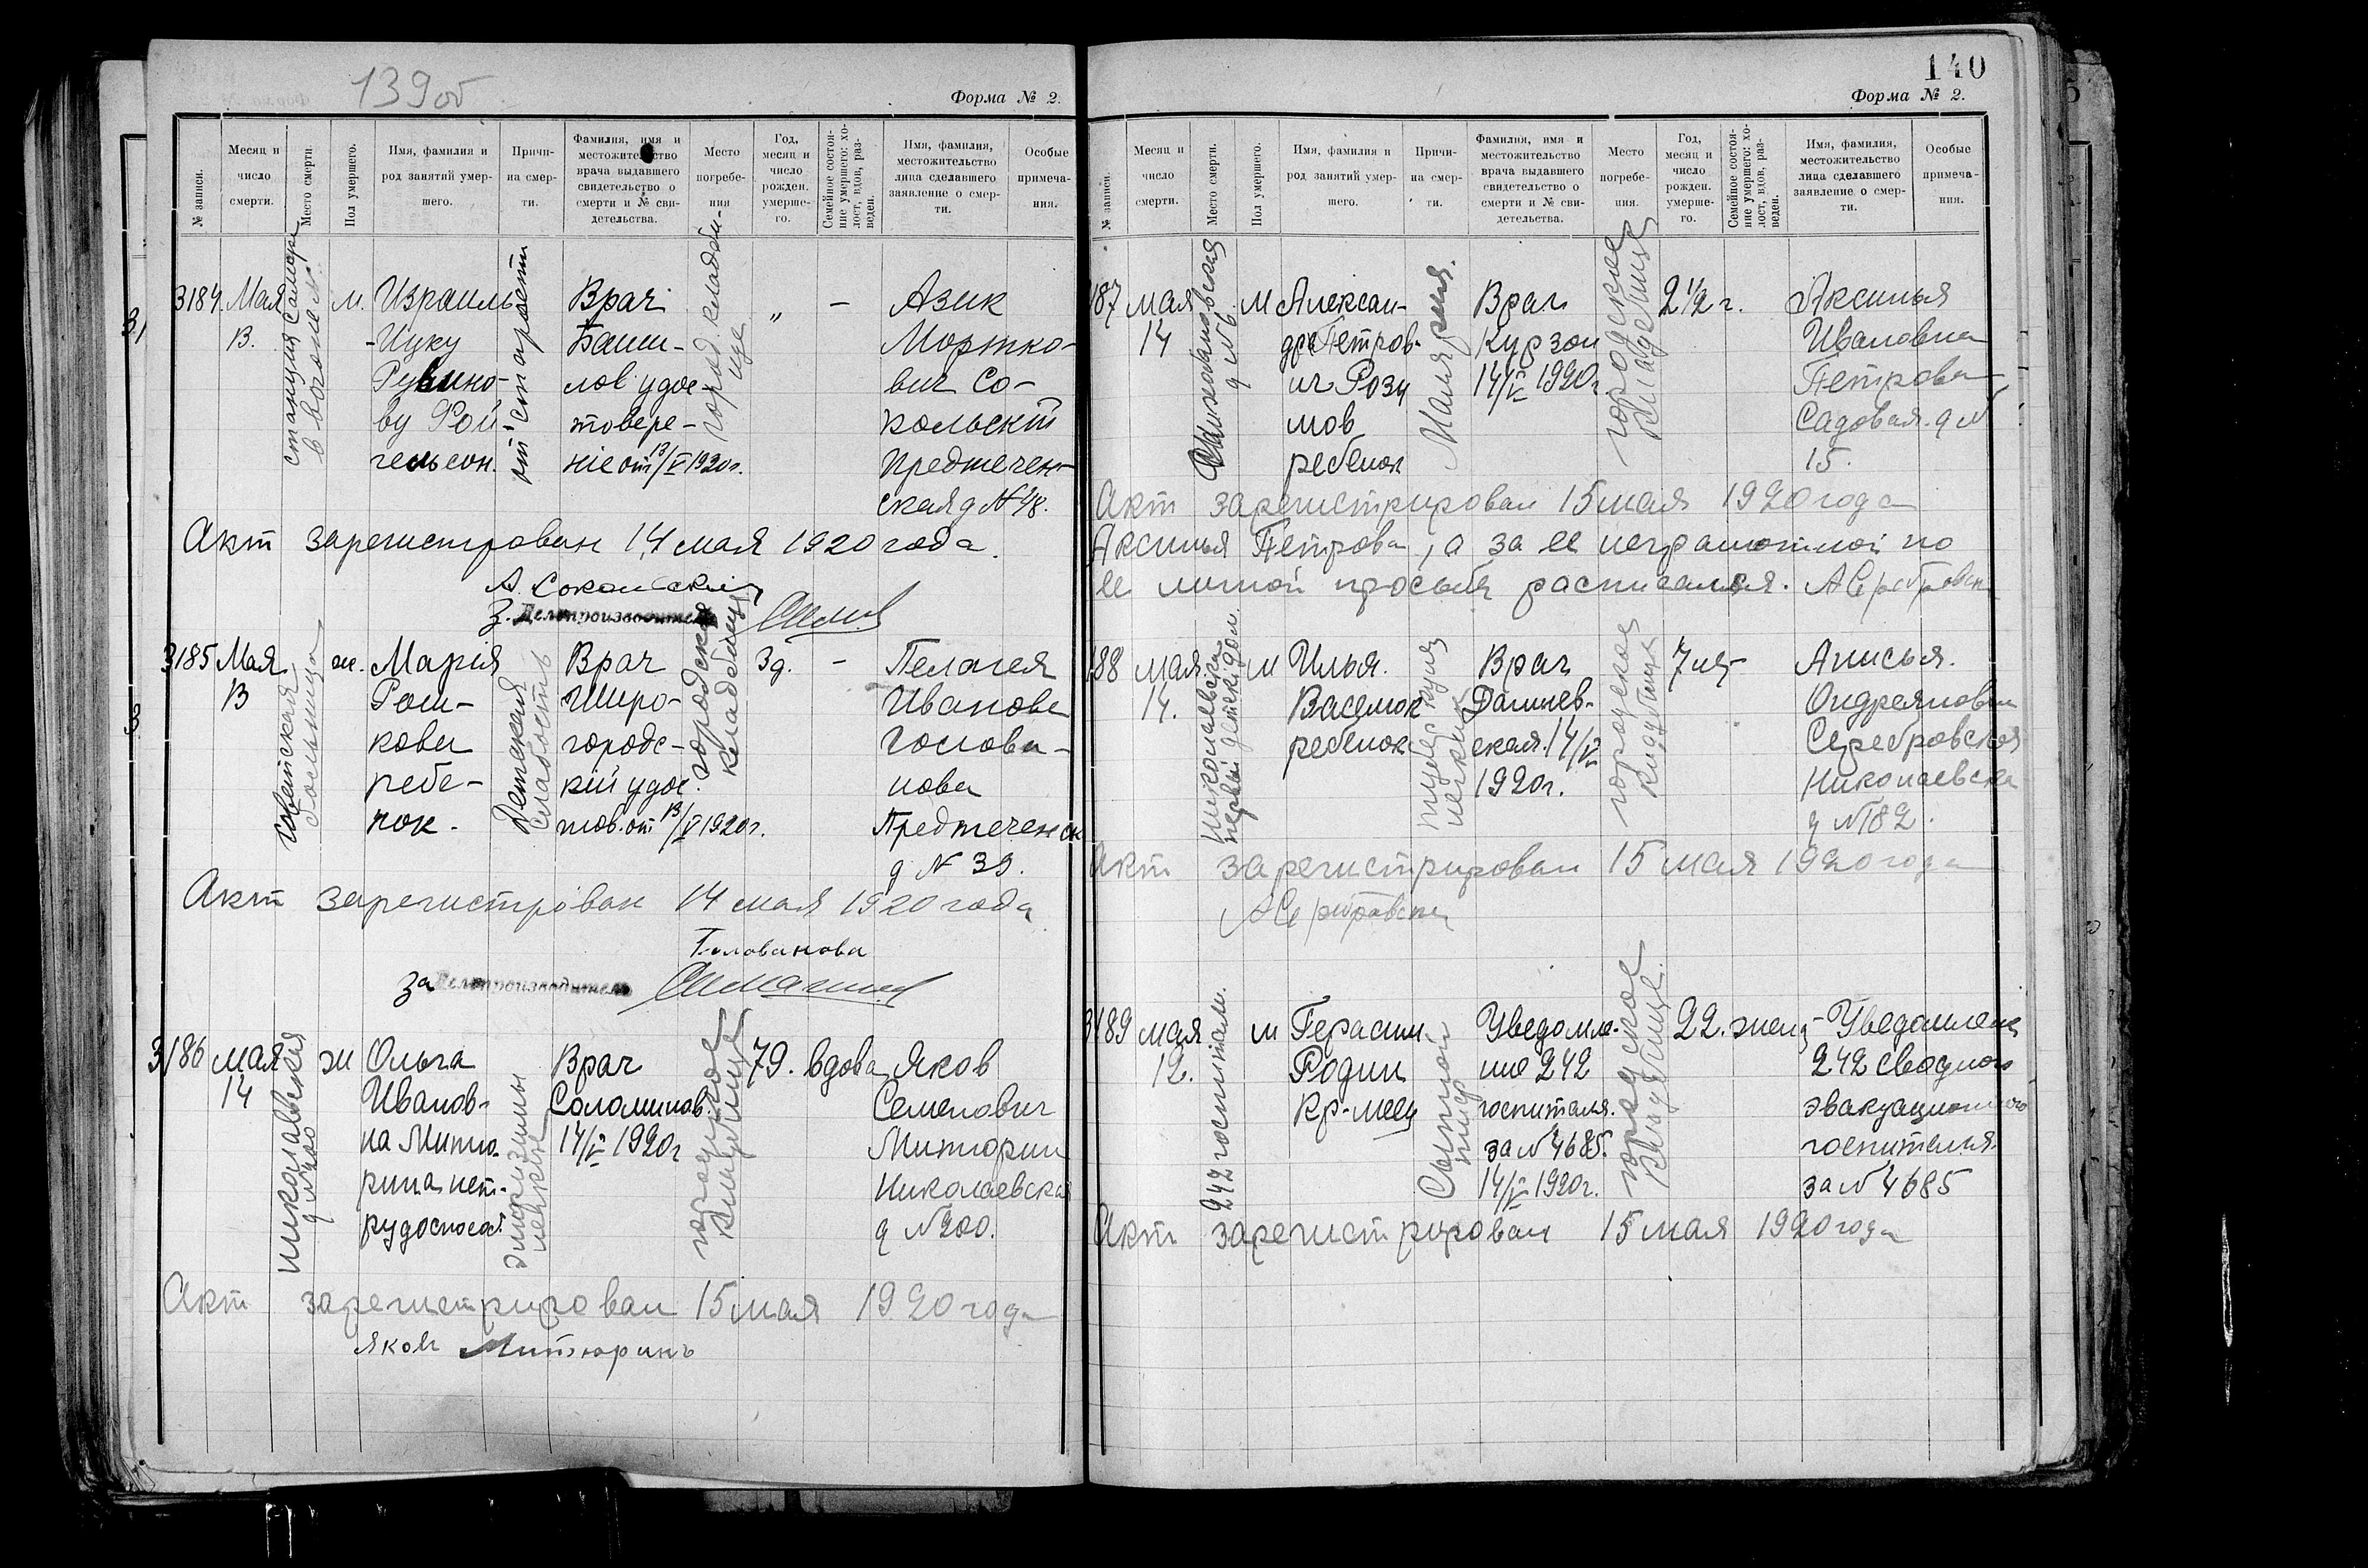 139об
Форма № 2.
№ записи.
Месяц и число смерти.
Место смерти.
Пол умершего.
Имя, фамилия и род занятий умершего.
Причина смерти.
Фамилия, имя и местожительство врача выдавшего свидетельство о смерти и № свидетельства.
Место погребения
Год, месяц и число рожден. умершего.
Семейное состояние умершего: холост, вдов, разведен.
Имя, фамилия, местожительство лица сделавшего заявление о смерти.
Особые примечания.
3184.
Мая
13.
станция Самара
в вагоне
м.
Израиль
-Ицку
Рувино-
ву Рой-
тельсон.
от старости
Врач
Баши-
лов удос-
товере-
ніе от 13/V 1920г.
город. кладби-
ще
"
–
Азик
Мортко-
вич Со-
кольскій
Предтечен-
ская д № 48.
Акт зарегистрован 14 мая 1920 года.
А. Сокольский
З. Делопроизводителя
3185
Мая
13
советская
больница
ж.
Марія
Рош-
кова
ребе-
нок.
Детская
слабость
Врач
Широ-
городс-
кій удос.
тов. от 13/V 1920г.
городское
кладбище
3д.
–
Пелагея
Иванова
Голова-
нова
Предтеченск
д № 39.
Акт зарегистрован 14 мая 1920 года
Голованова
За Делопроизводителя
3186
мая
14
Николаевская
д № 200
ж
Ольга
Иванов-
на Митю-
рина нет-
рудоспособ
эмфизимы
легких
Врач
Соломинов.
14/V 1920г
городское
кладбище
79.
вдова
Яков
Семенович
Митюрин
Николаевская
д № 200.
Акт зарегистрирован 15 мая 1920 года
Яковъ Митюринъ
140
Форма № 2.
№ записи.
Месяц и число смерти.
Место смерти.
Пол умершего.
Имя, фамилия и род занятий умершего.
Причина смерти.
Фамилия, имя и местожительство врача выдавшего свидетельство о смерти и № свидетельства.
Место погребения.
Год, месяц и число рожден. умершего.
Семейное состояние умершего: холост, вдов, разведен.
Имя, фамилия, местожительство лица сделавшего заявление о смерти.
Особые примечания.
187
мая
14
д № 6.
м
Алексан-
др Петров-
ич Рози
мов
ребенок
Малярия.
Врач
Курзон
14/V 1920г
городское
кладбище
2 1/2 г.
Аксинья
Ивановна
Петрова
Садовая. д №
15.
Акт зарегистрирован 15 мая 1920 года
Аксинья Петрова, а за ее неграмотной по
ее личной просьбе расписался.
188
мая.
14.
Николаевская
первый детский дом.
м
Илья.
Васенюк
ребенок
легких
Врач
Данчев-
ская. 14/V
1920г.
городское
кладбище
7 м-
Анисья.
Андреяновна
Серебровская
Николаевска
д № 182.
Акт зарегистрирован 15 мая 1920 года
3189
мая
12.
242 госпиталь.
м
Герасим
Родин
кр-меец
Сыпной
тиф
Уведомле-
ние 242
госпиталя.
за № 4685.
14/V 1920г.
городское
кладбище.
22.
женат
Уведомление
242 сводного
эвакуационного
госпиталя.
за № 4685
Акт зарегистрирован 15 мая 1920 года